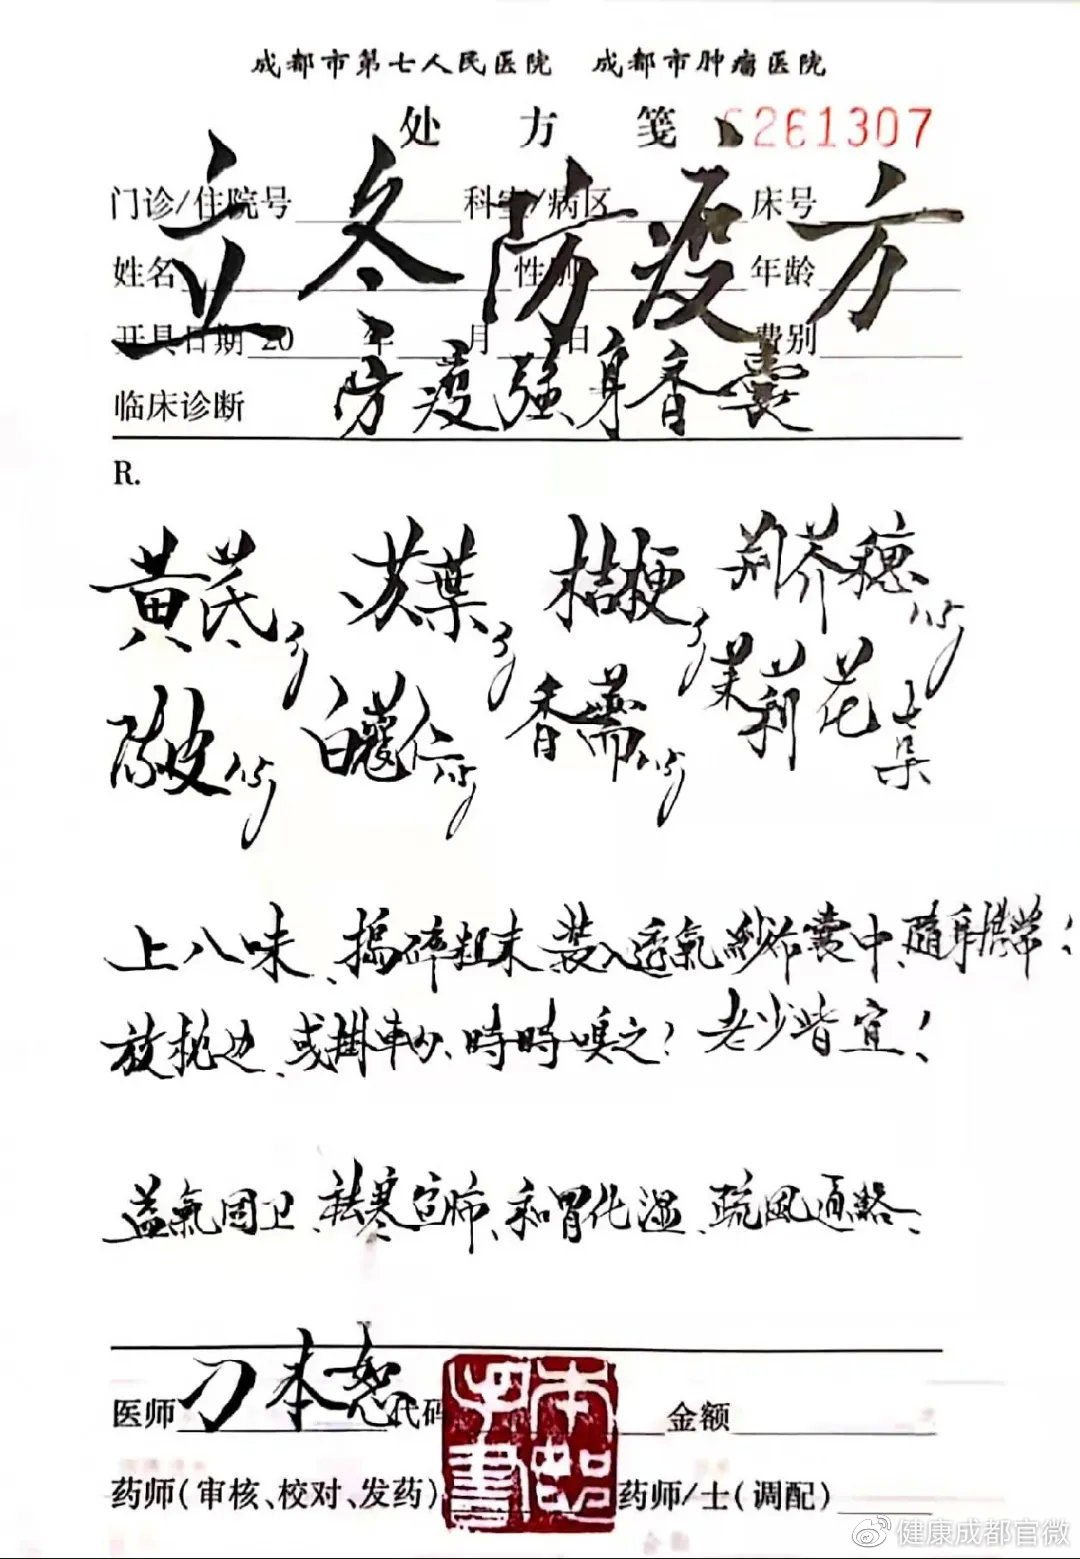 成都市第七人民医院 成都市肿瘤医院
处方笺 6261307
立冬防疫方
门诊/住院号 科室/病区 床号
姓名 性别 年齡
开具日期 20 年 月 日 费别
防疫強身香囊
临床诊断
R.
黄芪3g 苏葉3g 桔梗3g 荆芥穗1.5g
陈皮1.5g 白蔻仁1.5g 香薷1.5g 茉莉花七朵
上八味、搗碎粗末、装入透氣紗布囊中、隨身携带!
放枕边、或掛車内、時時嗅之!老少皆宜!
益氣固卫、祛寒宣肺、和胃化湿、疏风通络、
医师 刁本恕 代码 金额
本恕手書
药师(审核、校对、发药) 药师/士(调配)
健康成都官微